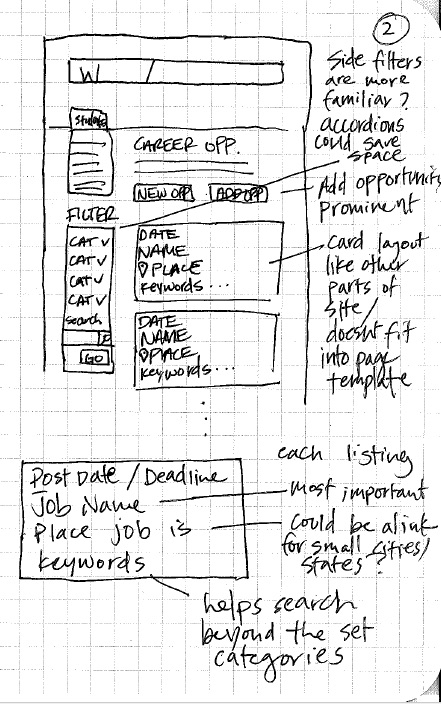 2
W /
Student
CAREER OPP.
NEW OPP ADD OPP
FILTER
CAT ∨
CAT ∨
CAT ∨
CAT ∨
search
GO
DATE
NAME
PLACE
keywords...
DATE
NAME
PLACE
keywords...
Side filters
are more
familiar?
accordions
could save
space
Add opportunity
prominent
card layout
like other
parts of
site/
doesnt fit
into page
template
Post Date / Deadline
Job Name
Place job is
keywords
each listing
most important
could be a link
for small cities/
states?
helps search
beyond the set
categories